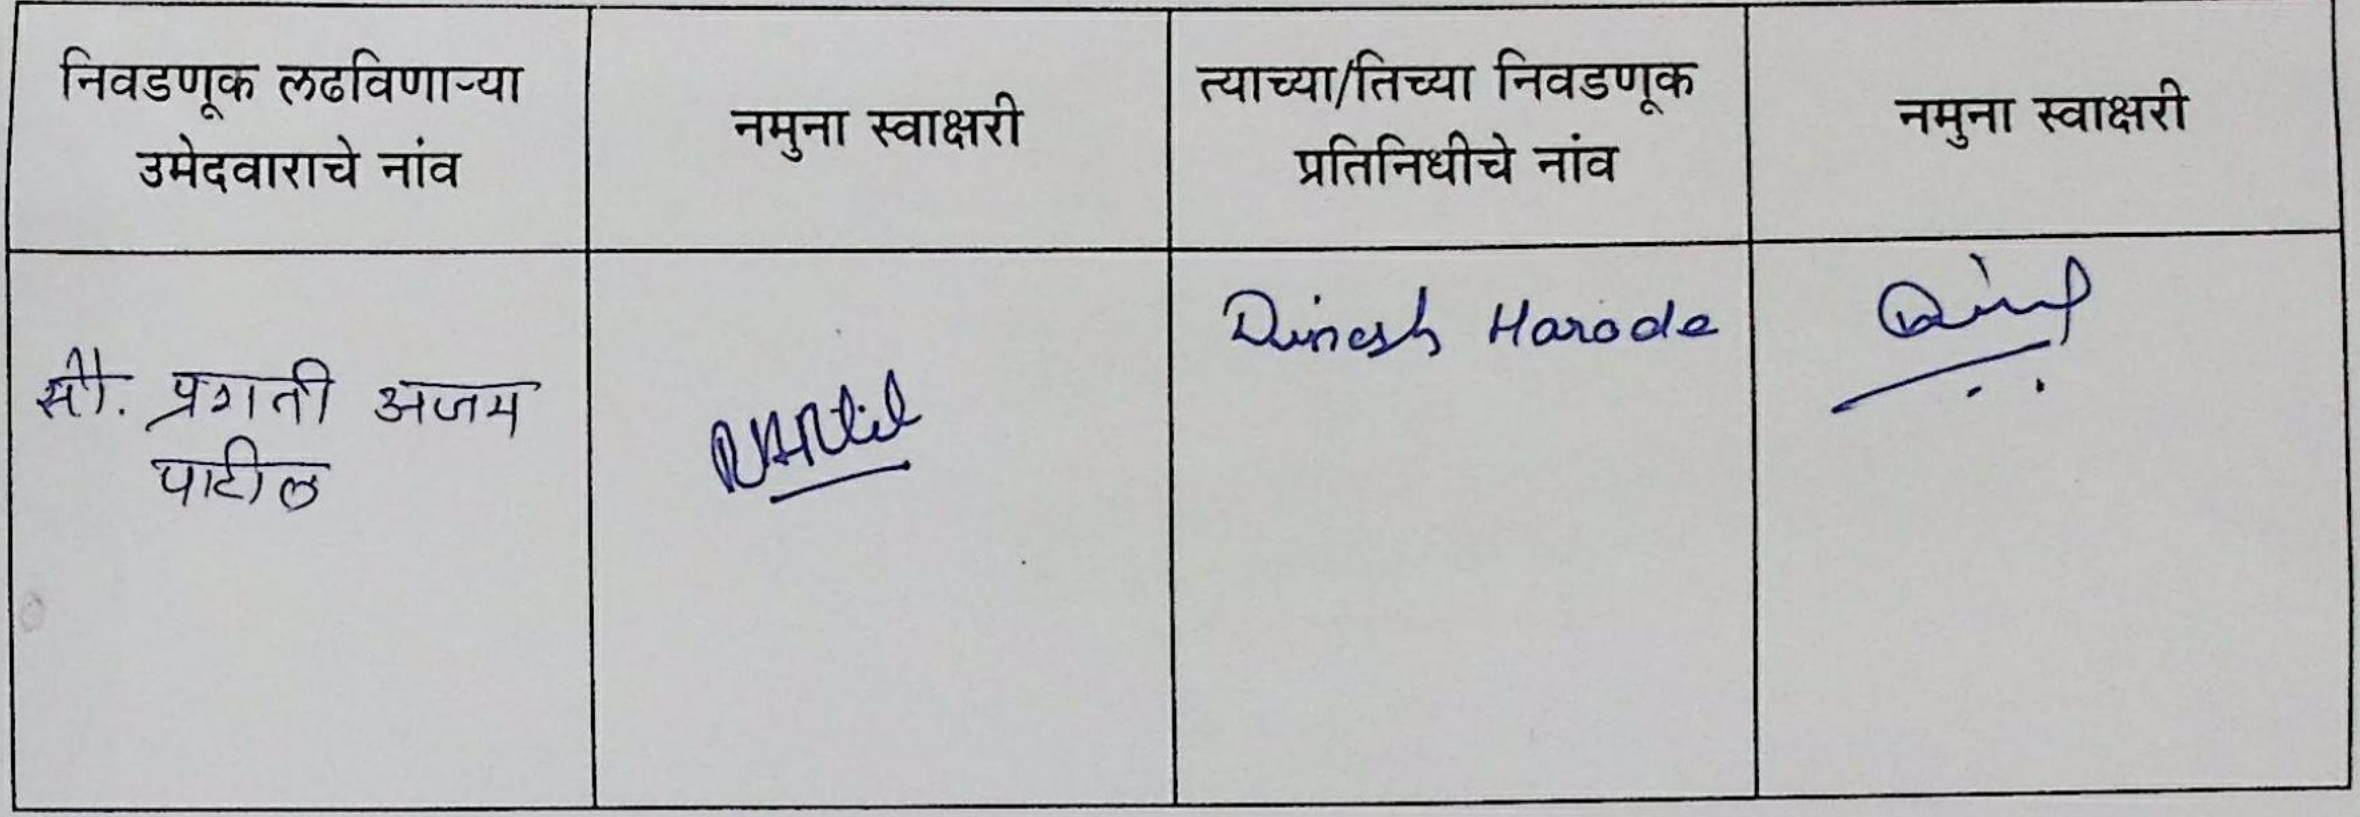 निवडणूक लढविणाऱ्या
उमेदवाराचे नांव
नमुना स्वाक्षरी
त्याच्या/तिच्या निवडणूक
प्रतिनिधीचे नांव
नमुना स्वाक्षरी
सौ. प्रगती अजय
पाटील
Dinesh Harode